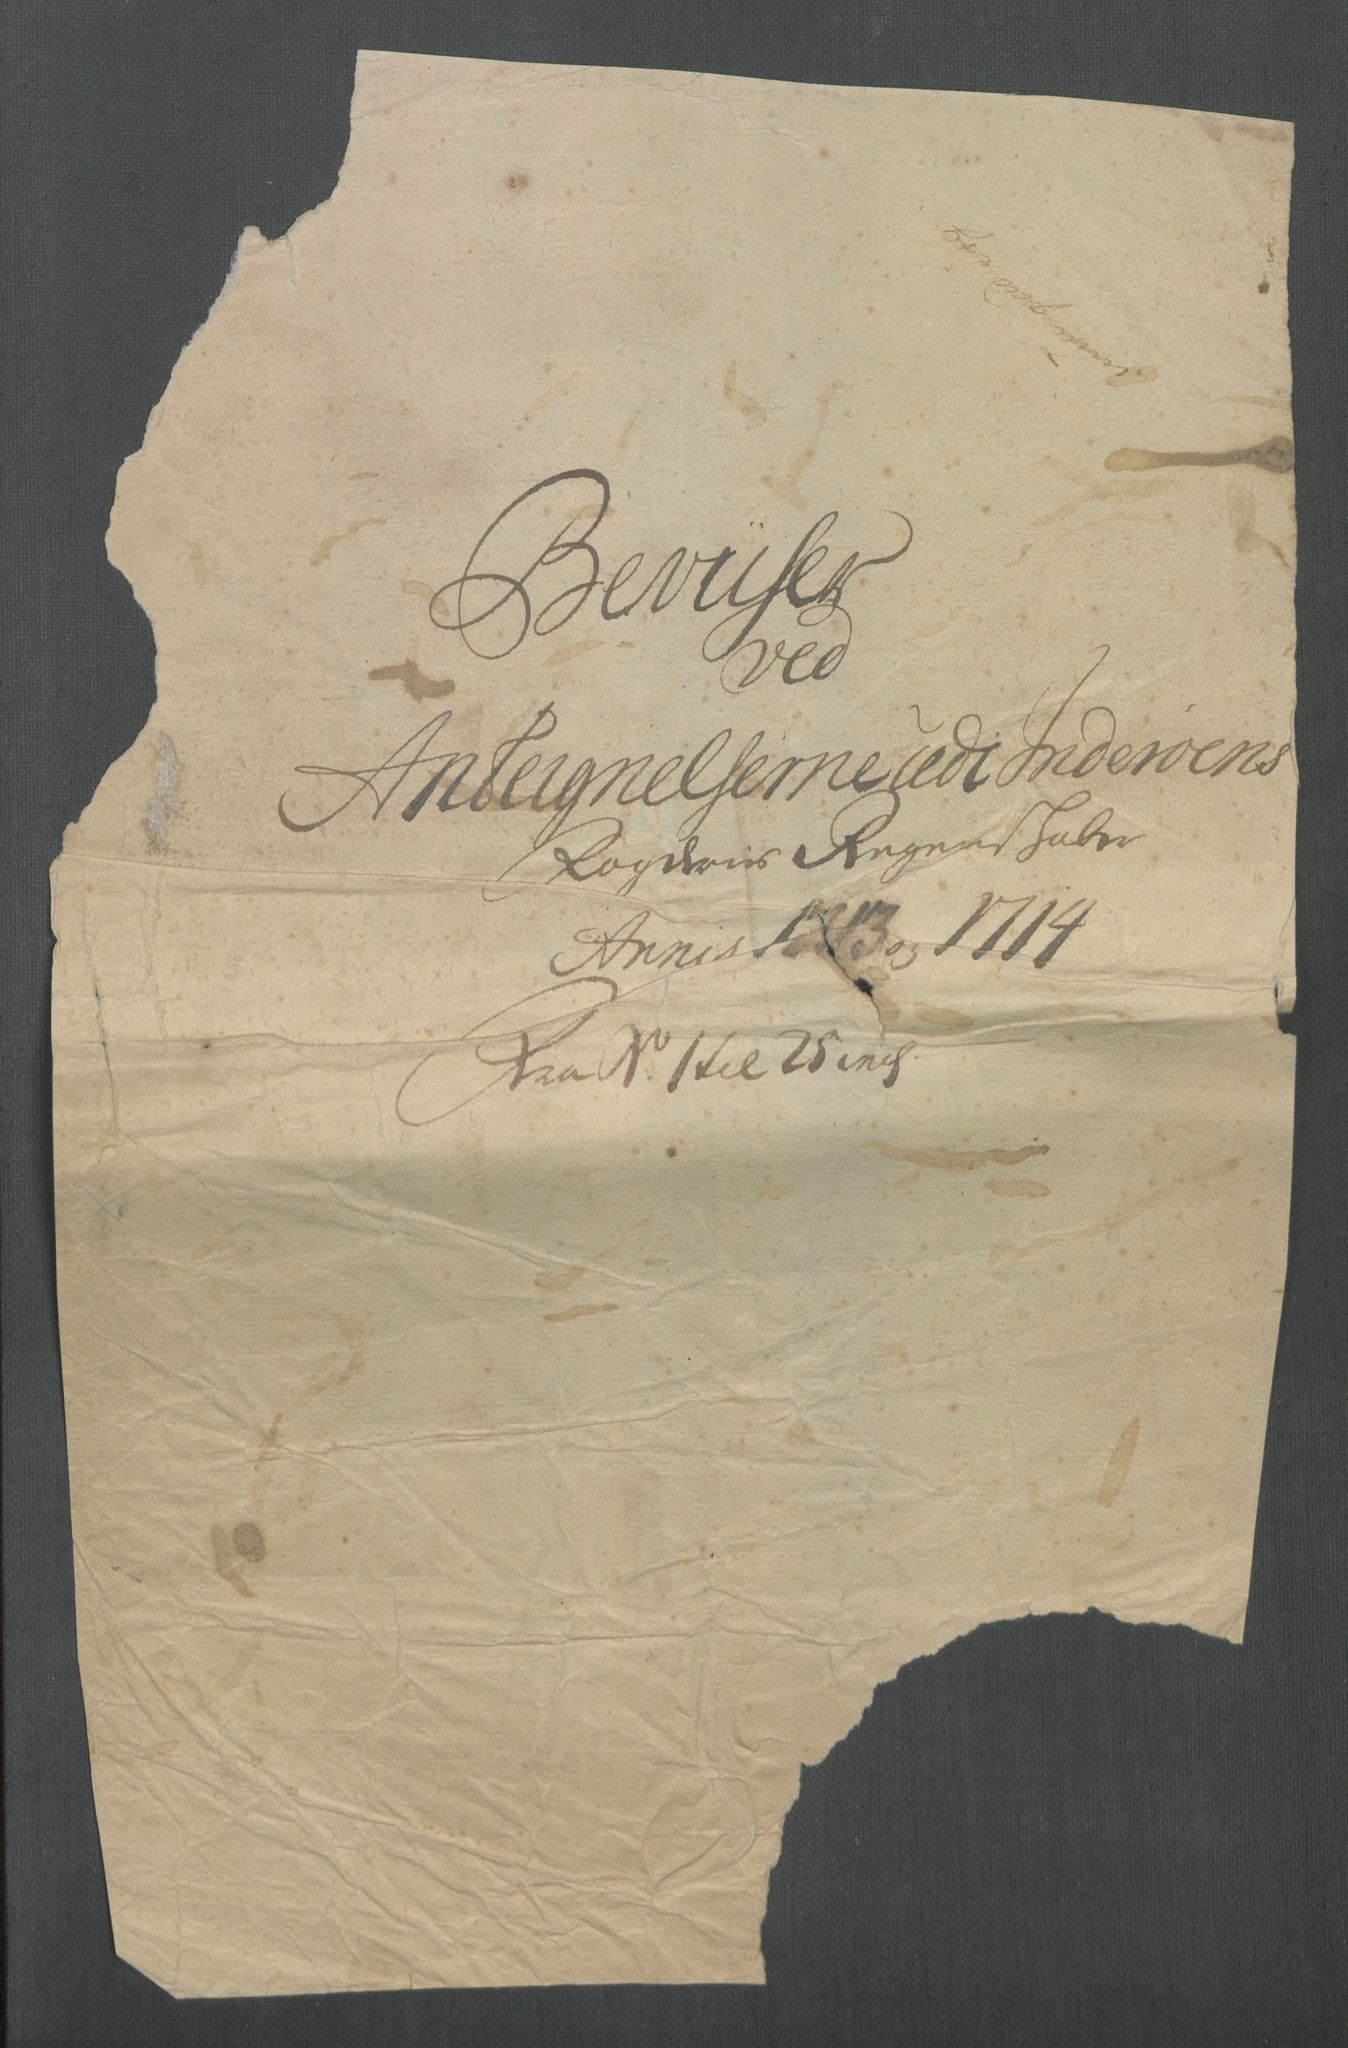 Bevüser
ved
Anteignelserne udi Inderøens
Fogderies Regenschaber
Annis 1713 og 1714
Fra No. 1 til 25 incl.